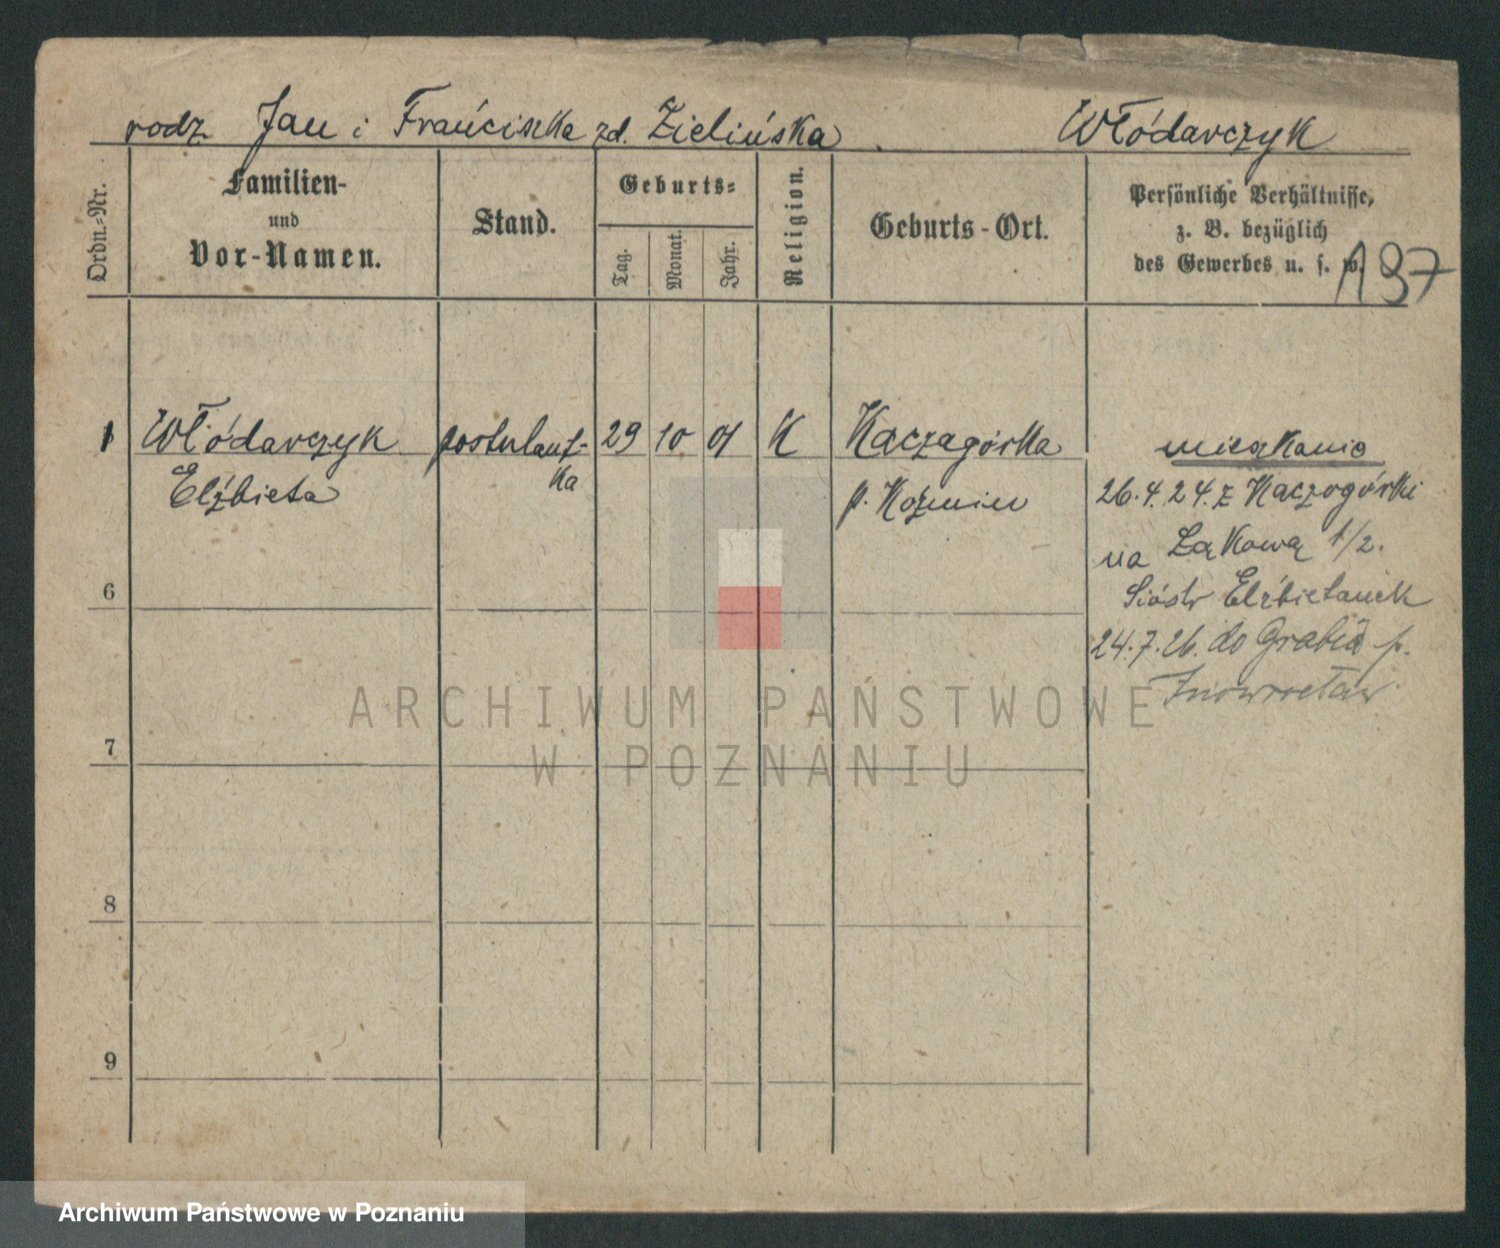 rodz. Jan i Franciszka zd. Zielińska Włódarczyk
Ordn.-Nr.
Familien-
und
Vor-Namen.
Stand.
Geburts-
Tag.
Monat.
Jahr.
Religion.
Geburts-Ort.
Persönliche Verhältnisse,
z. B. bezüglich
des Gewerbes u. s. w.
A 97
1 Włódarczyk postulant- 29 10 01 K Kaczagórka
Elżbieta ka p. Koźmin
mieszkanie
26.4.24. z Kaczogórki
na Łąkową 1/2.
Sióstr Elżbietanek
24.7.26. do Grabia p.
Inowrocław
6
7
8
9
ARCHIWUM PAŃSTWOWE
W POZNANIU
Archiwum Państwowe w Poznaniu